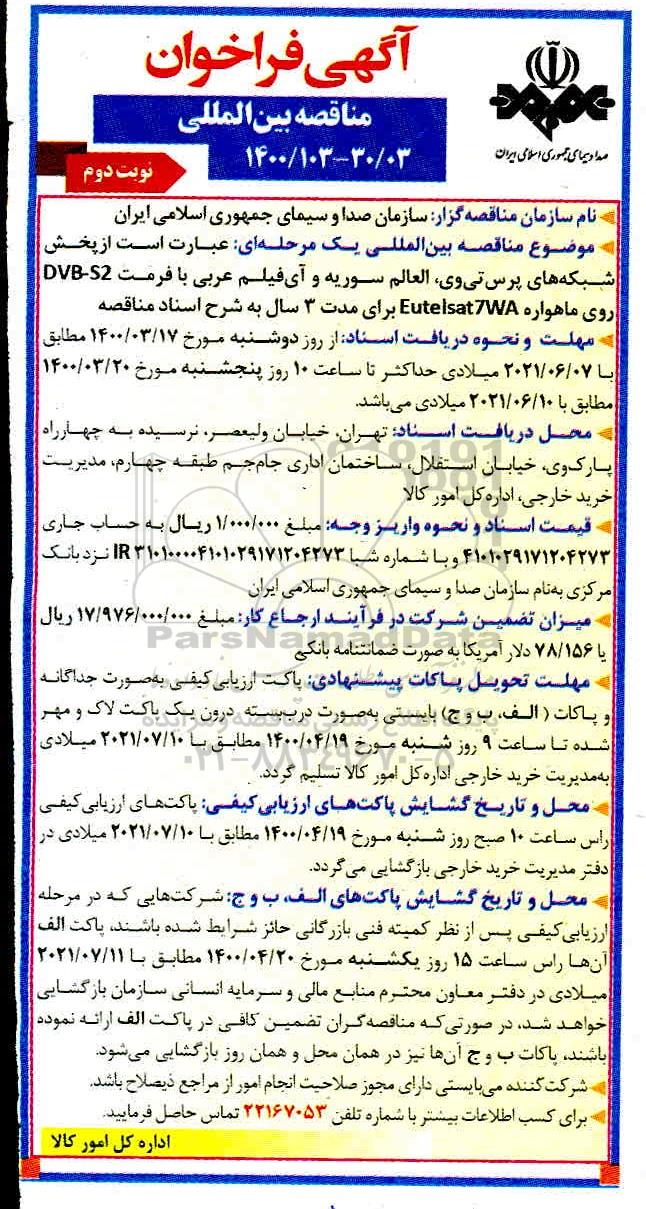 آگهی فراخوان
مناقصه بین المللی
۱۴۰۰/۱۰۳-۳۰/۰۳
نوبت دوم
صدا و سیمای جمهوری اسلامی ایران
نام سازمان مناقصه‌گزار: سازمان صدا و سیمای جمهوری اسلامی ایران
موضوع مناقصه بین‌المللی یک مرحله‌ای: عبارت است از پخش
شبکه‌های پرس‌تی‌وی، العالم سوریه و آی‌فیلم عربی با فرمت DVB-S2
روی ماهواره Eutelsat7WA برای مدت ۳ سال به شرح اسناد مناقصه
مهلت و نحوه دریافت اسناد: از روز دوشنبه مورخ ۱۴۰۰/۰۳/۱۷ مطابق
با ۲۰۲۱/۰۶/۰۷ میلادی حداکثر تا ساعت ۱۰ روز پنجشنبه مورخ ۱۴۰۰/۰۳/۲۰
مطابق با ۲۰۲۱/۰۶/۱۰ میلادی می‌باشد.
محل دریافت اسناد: تهران، خیابان ولیعصر، نرسیده به چهارراه
پارک‌وی، خیابان استقلال، ساختمان اداری جام‌جم طبقه چهارم، مدیریت
خرید خارجی، اداره‌کل امور کالا
قیمت اسناد و نحوه واریز وجه: مبلغ ۱/۰۰۰/۰۰۰ ریال به حساب جاری
۴۱۰۱۰۲۹۱۷۱۲۰۴۲۷۳ و با شماره شبا IR ۳۱۰۱۰۰۰۰۴۱۰۱۰۲۹۱۷۱۲۰۴۲۷۳ نزد بانک
مرکزی به‌نام سازمان صدا و سیمای جمهوری اسلامی ایران
میزان تضمین شرکت در فرآیند ارجاع کار: مبلغ ۱۷/۹۷۶/۰۰۰/۰۰۰ ریال
یا ۷۸/۱۵۶ دلار آمریکا به صورت ضمانتنامه بانکی
مهلت تحویل پاکات پیشنهادی: پاکت ارزیابی‌کیفی به‌صورت جداگانه
و پاکات (الف، ب و ج) بایستی به‌صورت درب‌بسته درون یک پاکت لاک و مهر
شده تا ساعت ۹ روز شنبه مورخ ۱۴۰۰/۰۴/۱۹ مطابق با ۲۰۲۱/۰۷/۱۰ میلادی
به‌مدیریت خرید خارجی اداره‌کل امور کالا تسلیم گردد.
محل و تاریخ گشایش پاکت‌های ارزیابی‌کیفی: پاکت‌های ارزیابی‌کیفی
راس ساعت ۱۰ صبح روز شنبه مورخ ۱۴۰۰/۰۴/۱۹ مطابق با ۲۰۲۱/۰۷/۱۰ میلادی در
دفتر مدیریت خرید خارجی بازگشایی می‌گردد.
محل و تاریخ گشایش پاکت‌های الف، ب و ج: شرکت‌هایی که در مرحله
ارزیابی‌کیفی پس از نظر کمیته فنی بازرگانی حائز شرایط شده باشند، پاکت الف
آن‌ها راس ساعت ۱۵ روز یکشنبه مورخ ۱۴۰۰/۰۴/۲۰ مطابق با ۲۰۲۱/۰۷/۱۱
میلادی در دفتر معاون محترم منابع مالی و سرمایه انسانی سازمان بازگشایی
خواهد شد، در صورتی‌که مناقصه‌گران تضمین کافی در پاکت الف ارائه نموده
باشند، پاکات ب و ج آن‌ها نیز در همان محل و همان روز بازگشایی می‌شود.
شرکت‌کننده می‌بایستی دارای مجوز صلاحیت انجام امور از مراجع ذیصلاح باشد.
برای کسب اطلاعات بیشتر با شماره تلفن ۲۲۱۶۷۰۵۳ تماس حاصل فرمایید.
اداره کل امور کالا
ParsNamadData
۰۲۱-۸۸۳۴۹۶۷۰-۵